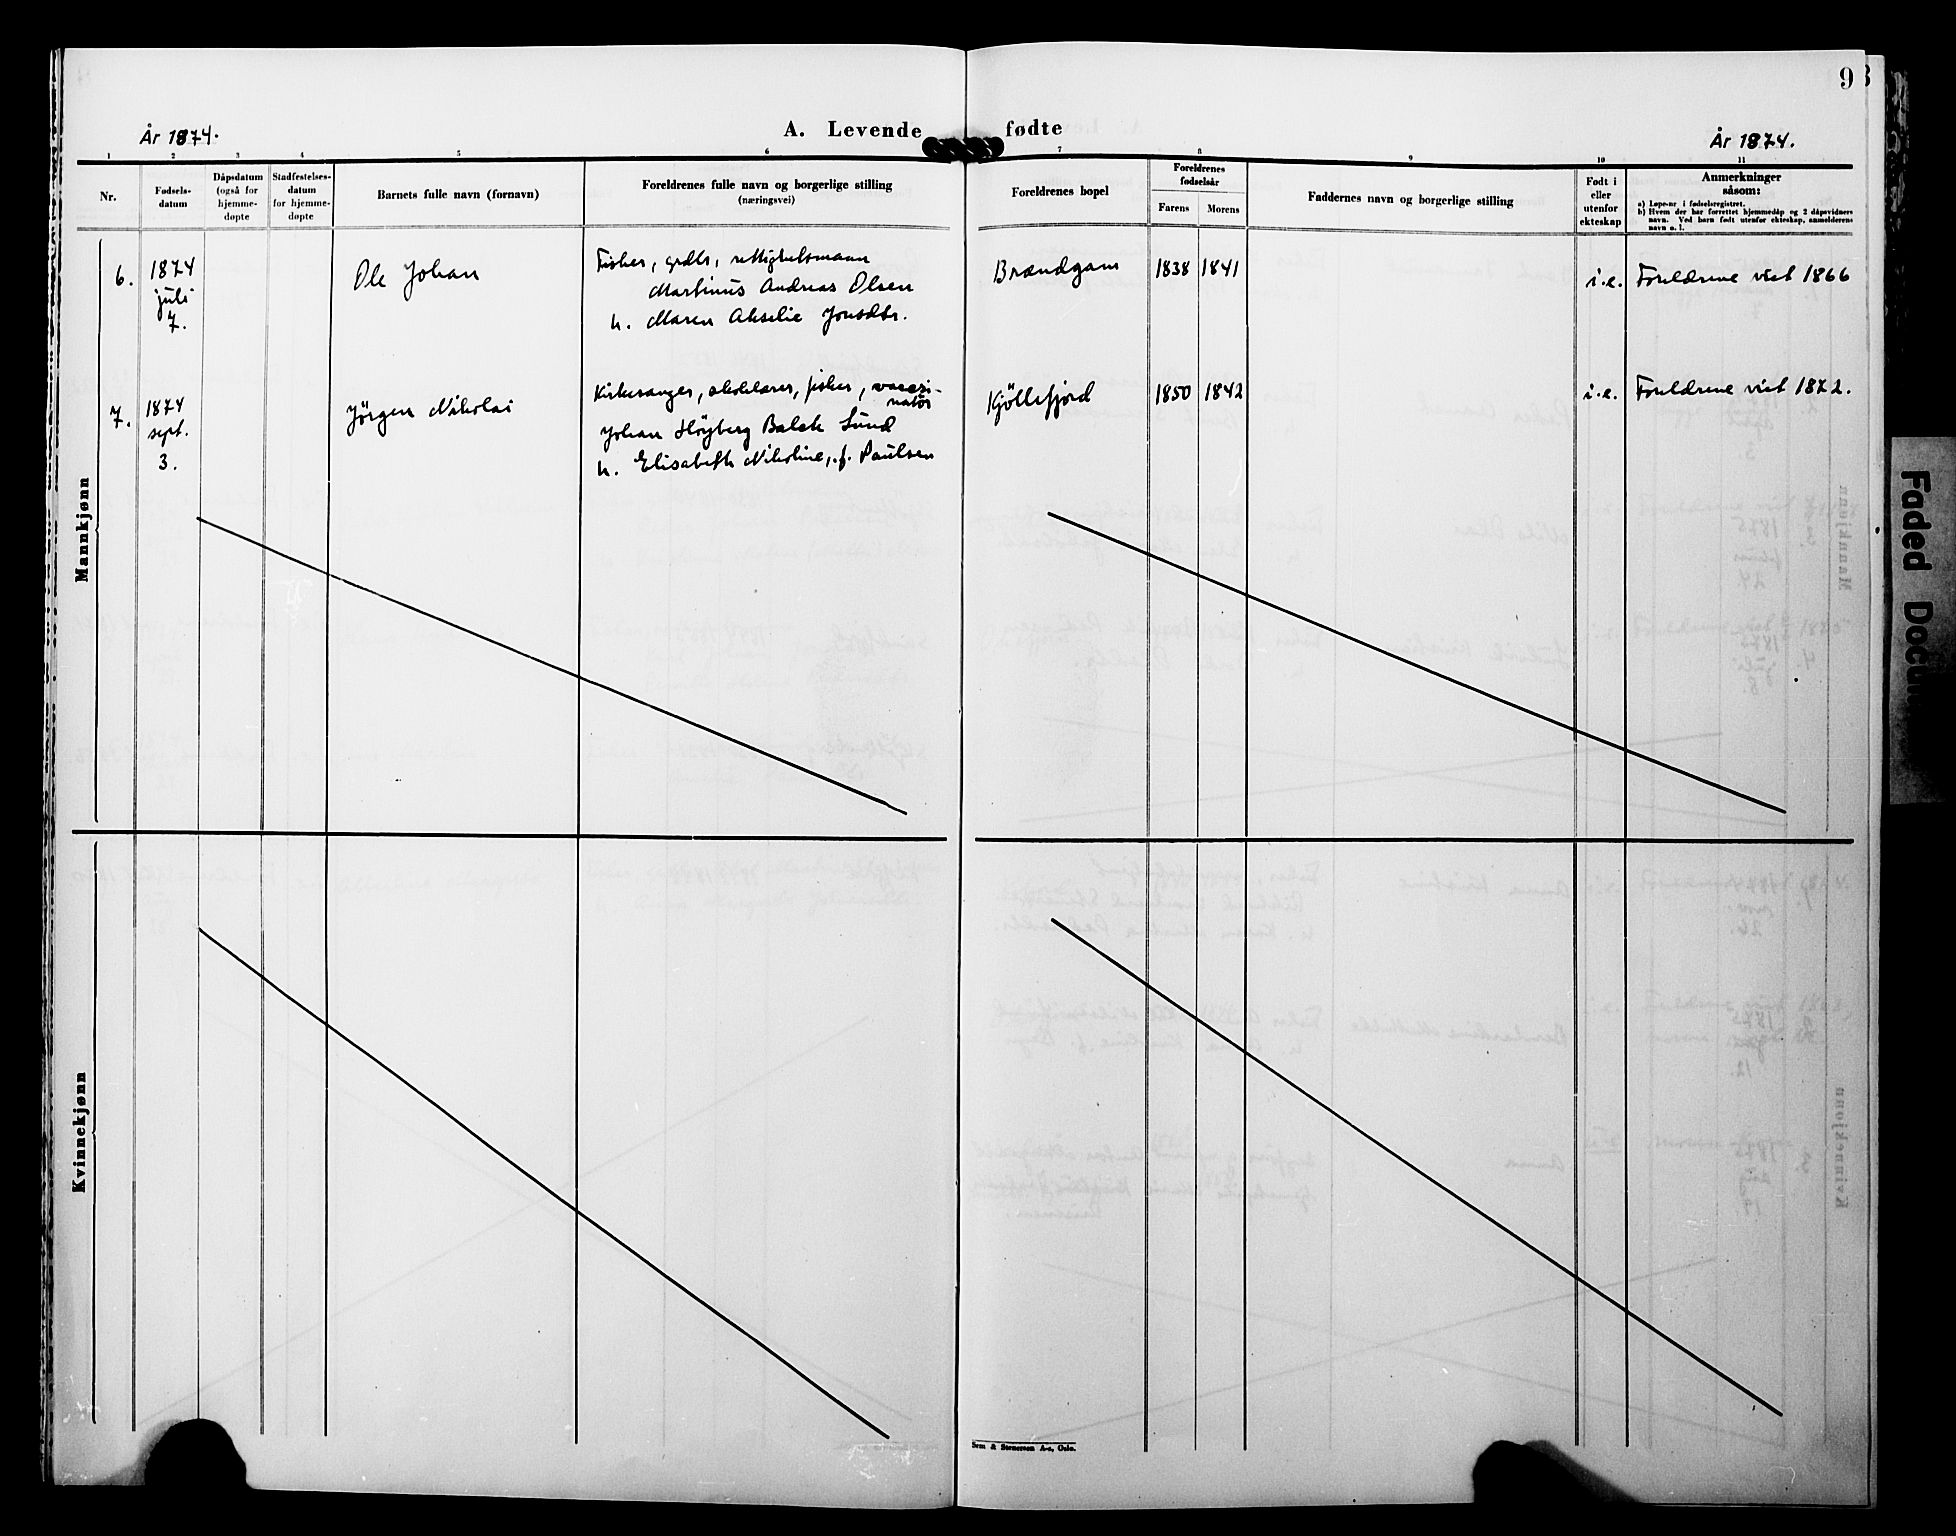 9
År 1874.
A. Levende fødte
År 1874.
1 2 3 4 5 6 7 8 9 10 11
Nr.
Fødsels-
datum
Dåpsdatum
(også for
hjemme-
døpte
Stadfestelses-
datum
for hjemme-
døpte
Barnets fulle navn (fornavn)
Foreldrenes fulle navn og borgerlige stilling
(næringsvei)
Foreldrenes bopel
Foreldrenes
fødselsår
Farens Morens
Faddernes navn og borgerlige stilling
Født i
eller
utenfor
ekteskap
Anmerkninger
såsom:
a) Løpe-nr i fødselsregistret.
b) Hvem der har forrettet hjemmedåp og 2 dåpsvidners
navn. Ved barn født utenfor ekteskap, anmelderens
navn o. l.
Mannkjønn
6.
1874
juli
7.
Ole Johan
Fisker, grdbr, rettighetsmann
Martinus Andreas Olsen
h. Maren Akselie Jonsdtr.
Brændgam
1838 1841
i.e.
Foreldrene viet 1866
7.
1874
sept.
3.
Jörgen Nikolai
Kirkesanger, skolelærer, fisker, vaccsi-
natör
Johan Höyberg Balck Lund
h. Elisabeth Nikoline, f. Paulsen
Kjöllefjord
1850 1842
i.e.
Foreldrene viet 1872.
Kvinnekjønn
Sem & Stenersen A-s, Oslo.
Faded